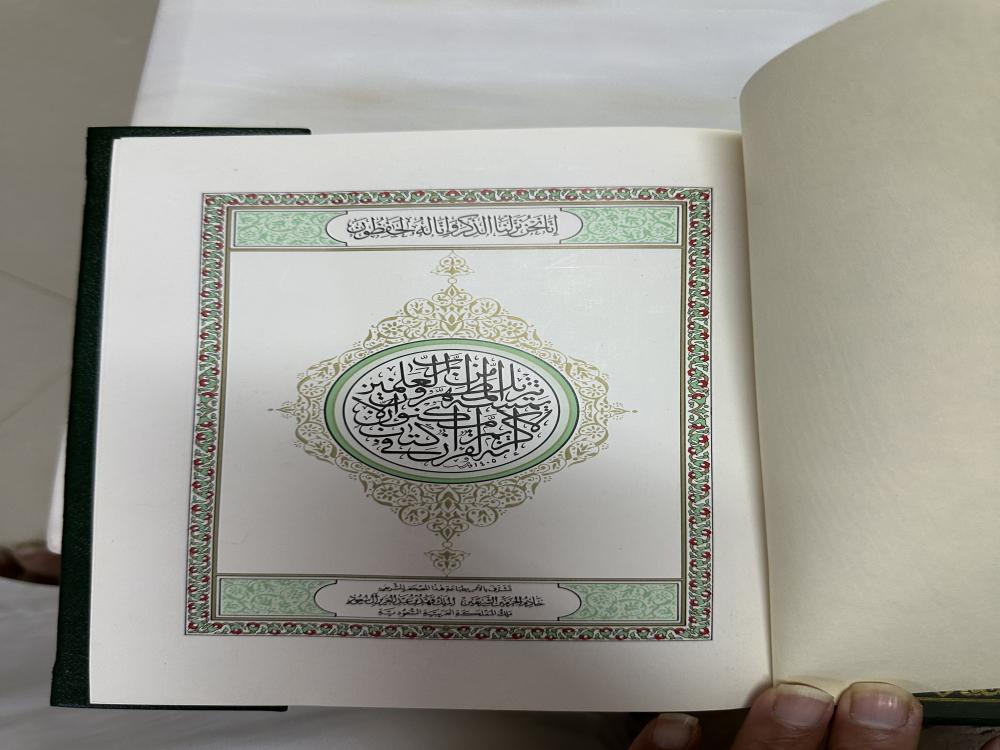 إنا نحن نزلنا الذكر وإنا له لحفظون
إنه لقرآن كريم في كتب مكنون لا يمسه إلا المطهرون تنزيل من رب العلمين
١٤٠٥
تشرف بالأمر بطباعة هذا المصحف الشريف
خادم الحرمين الشريفين الملك فهد بن عبد العزيز آل سعود
ملك المملكة العربية السعودية